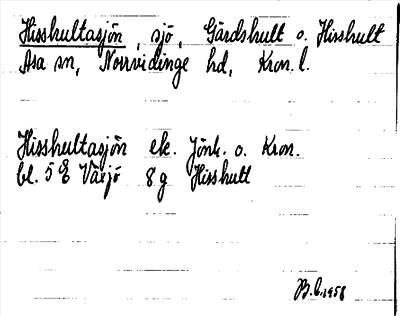 Hisshultasjön, sjö, Gårdshult o. Hisshult
Asa sn, Norrvidinge hd, Kron. l.
Hisshultasjön ek. Jönk. o. Kron.
bl. 5 Ö Växjö 8 g Hisshult
B.L. 1958